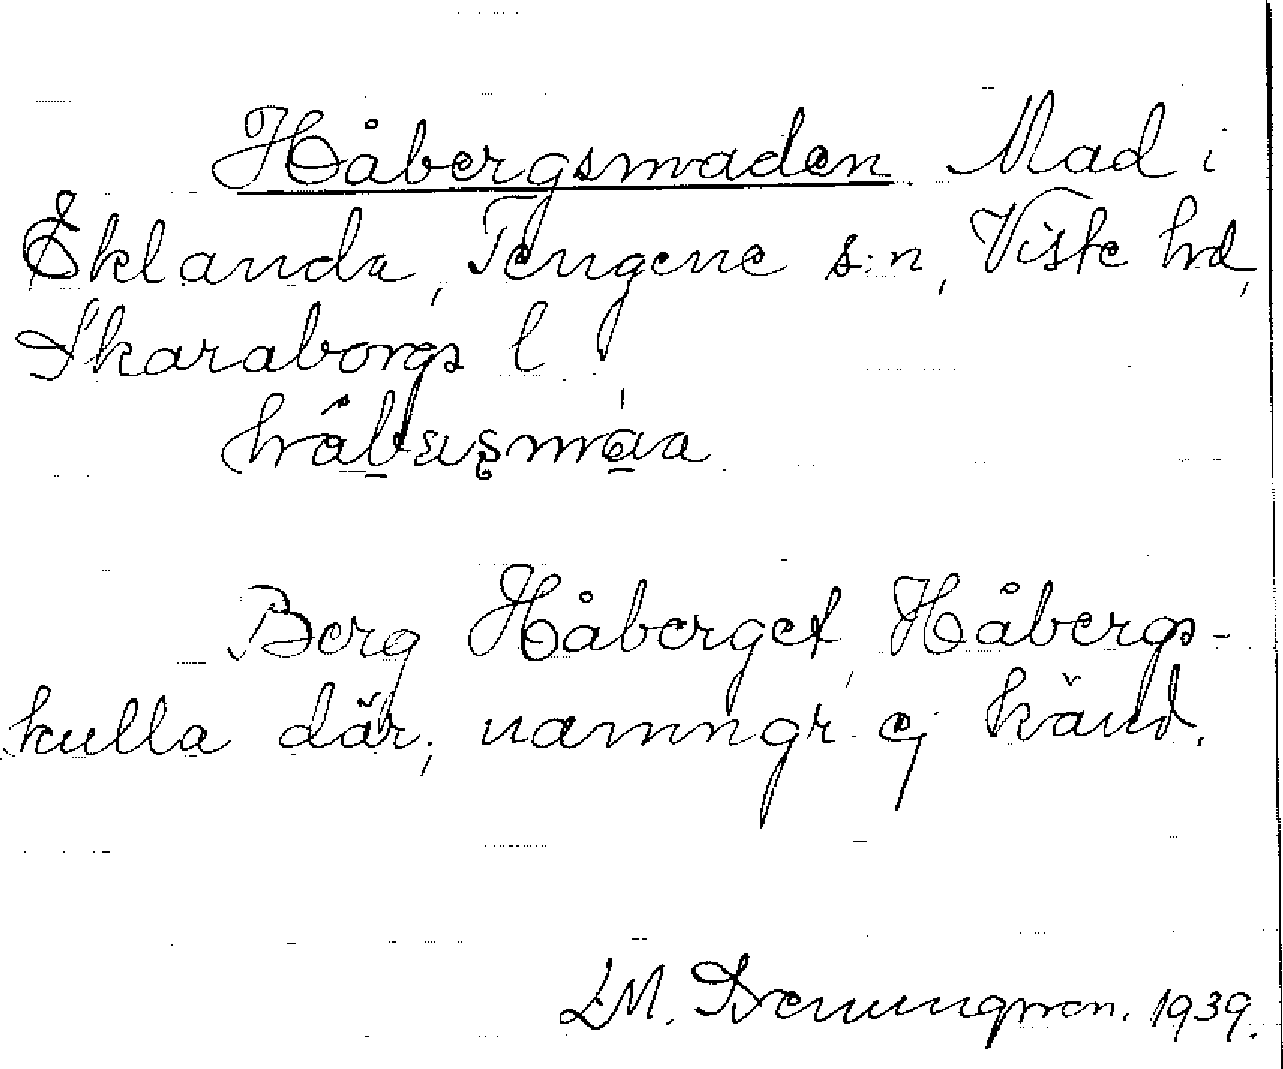 Håbergsmaden Mad i
Eklanda, Tengene s:n, Viste hd,
Skaraborgs l
Berg Håberget, Håbergs-
kulla där; namngr. ej känd.
1939.